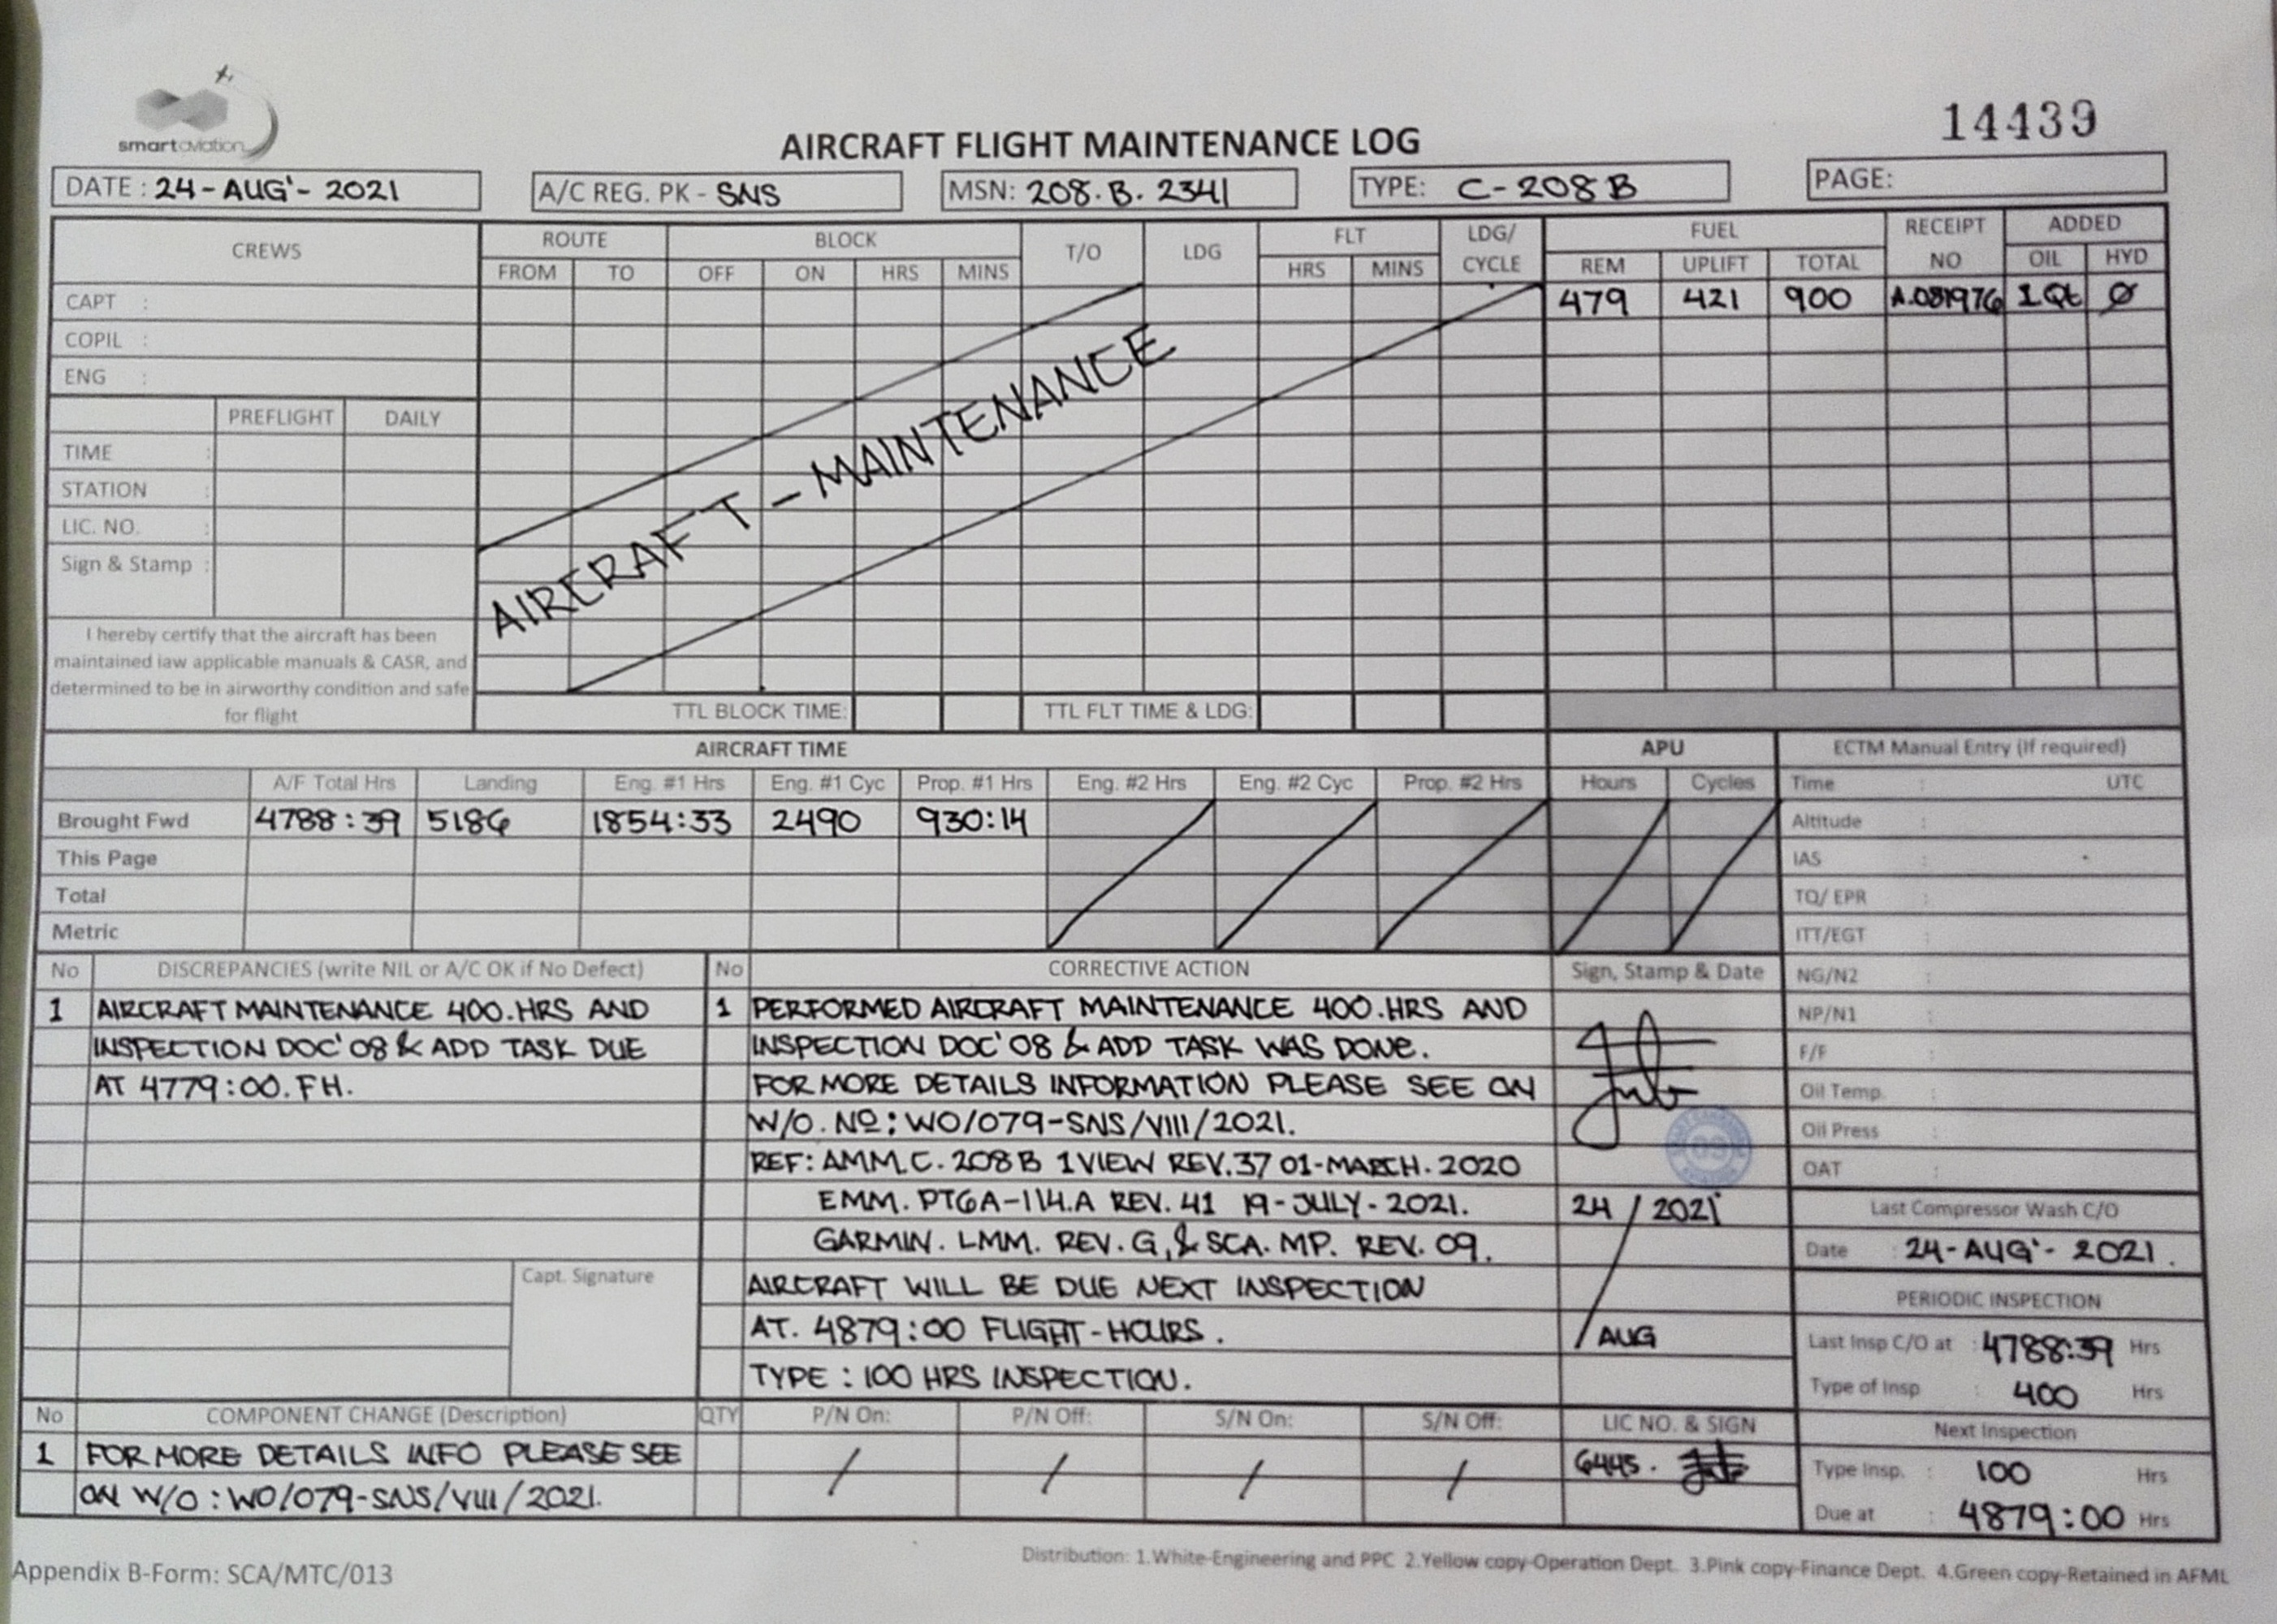 smart aviation
14439
AIRCRAFT FLIGHT MAINTENANCE LOG
DATE : 24-AUG'-2021 A/C REG. PK - SNS MSN: 208.B.2341 TYPE: C-208B PAGE:
CREWS ROUTE BLOCK T/O LDG FLT LDG/ FUEL RECEIPT ADDED
FROM TO OFF ON HRS MINS HRS MINS CYCLE REM UPLIFT TOTAL NO OIL HYD
CAPT : 479 421 900 A.081976 1 Qt Ø
COPIL :
ENG :
PREFLIGHT DAILY
TIME :
STATION :
LIC. NO. :
Sign & Stamp :
AIRCRAFT - MAINTENANCE
I hereby certify that the aircraft has been
maintained iaw applicable manuals & CASR, and
determined to be in airworthy condition and safe
for flight
TTL BLOCK TIME: TTL FLT TIME & LDG:
AIRCRAFT TIME APU ECTM Manual Entry (If required)
A/F Total Hrs Landing Eng. #1 Hrs Eng. #1 Cyc Prop. #1 Hrs Eng. #2 Hrs Eng. #2 Cyc Prop. #2 Hrs Hours Cycles Time : UTC
Brought Fwd 4788:39 5186 1854:33 2490 930:14 Altitude :
This Page IAS :
Total TQ/ EPR :
Metric ITT/EGT :
No DISCREPANCIES (write NIL or A/C OK if No Defect) No CORRECTIVE ACTION Sign, Stamp & Date NG/N2 :
1 AIRCRAFT MAINTENANCE 400.HRS AND 1 PERFORMED AIRCRAFT MAINTENANCE 400.HRS AND NP/N1 :
INSPECTION DOC'08 & ADD TASK DUE INSPECTION DOC'08 & ADD TASK WAS DONE. F/F :
AT 4779:00.FH. FOR MORE DETAILS INFORMATION PLEASE SEE ON Oil Temp. :
W/O. No: WO/079-SNS/VIII/2021. Oil Press :
REF: AMM.C.208B 1VIEW REV.37 01-MARCH.2020 09 OAT :
EMM. PT6A-114.A REV.41 19-JULY-2021. 24 / 2021 Last Compressor Wash C/O
GARMIN. LMM. REV. G, & SCA. MP. REV. 09. Date : 24-AUG'-2021.
Capt. Signature AIRCRAFT WILL BE DUE NEXT INSPECTION PERIODIC INSPECTION
AT. 4879:00 FLIGHT-HOURS. / AUG Last Insp C/O at : 4788:39 Hrs
TYPE : 100 HRS INSPECTION. Type of Insp : 400 Hrs
No COMPONENT CHANGE (Description) QTY P/N On: P/N Off: S/N On: S/N Off: LIC NO. & SIGN Next Inspection
1 FOR MORE DETAILS INFO PLEASE SEE / / / / 6445. Type Insp. : 100 Hrs
ON W/O : WO/079-SNS/VIII/2021. Due at : 4879:00 Hrs
Appendix B-Form: SCA/MTC/013
Distribution: 1.White-Engineering and PPC 2.Yellow copy-Operation Dept. 3.Pink copy-Finance Dept. 4.Green copy-Retained in AFML